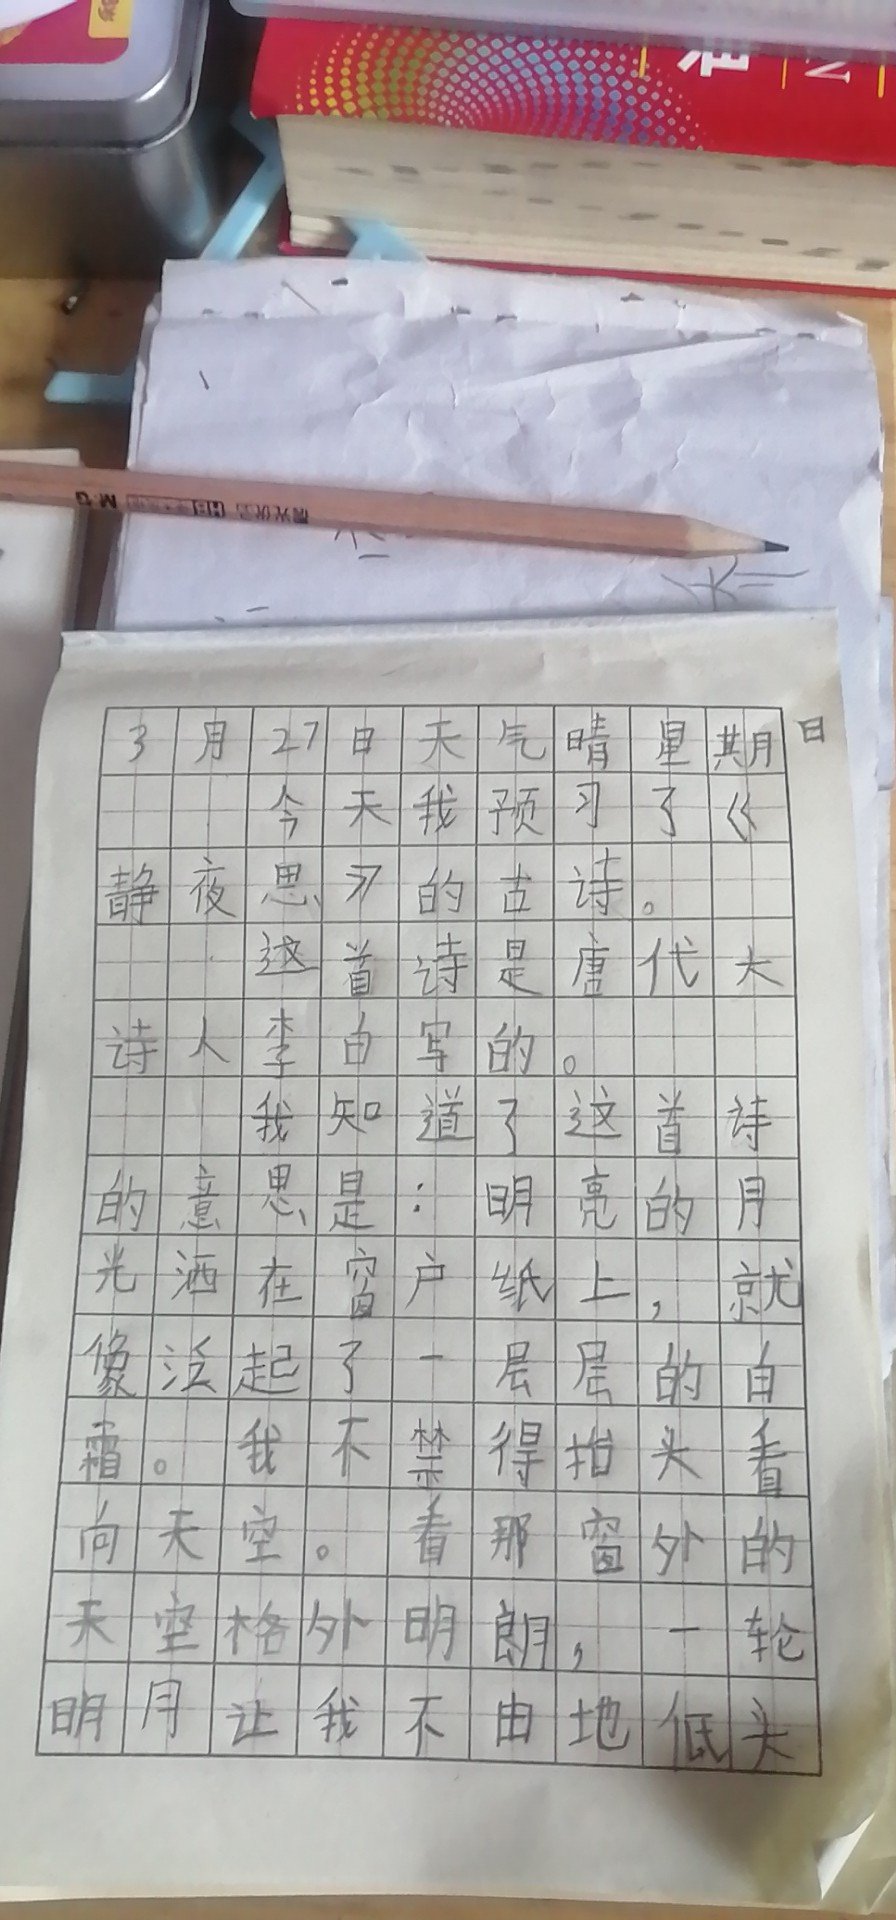 N
MG
3月27日天气晴星期日
今天我预习了《
静夜思》的古诗。
这首诗是唐代大
诗人李白写的。
我知道了这首诗
的意思是：明亮的月
光洒在窗户纸上，就
像泛起了一层层的白
霜。我不禁得抬头看
向天空。看那窗外的
天空格外明朗，一轮
明月让我不由地低头